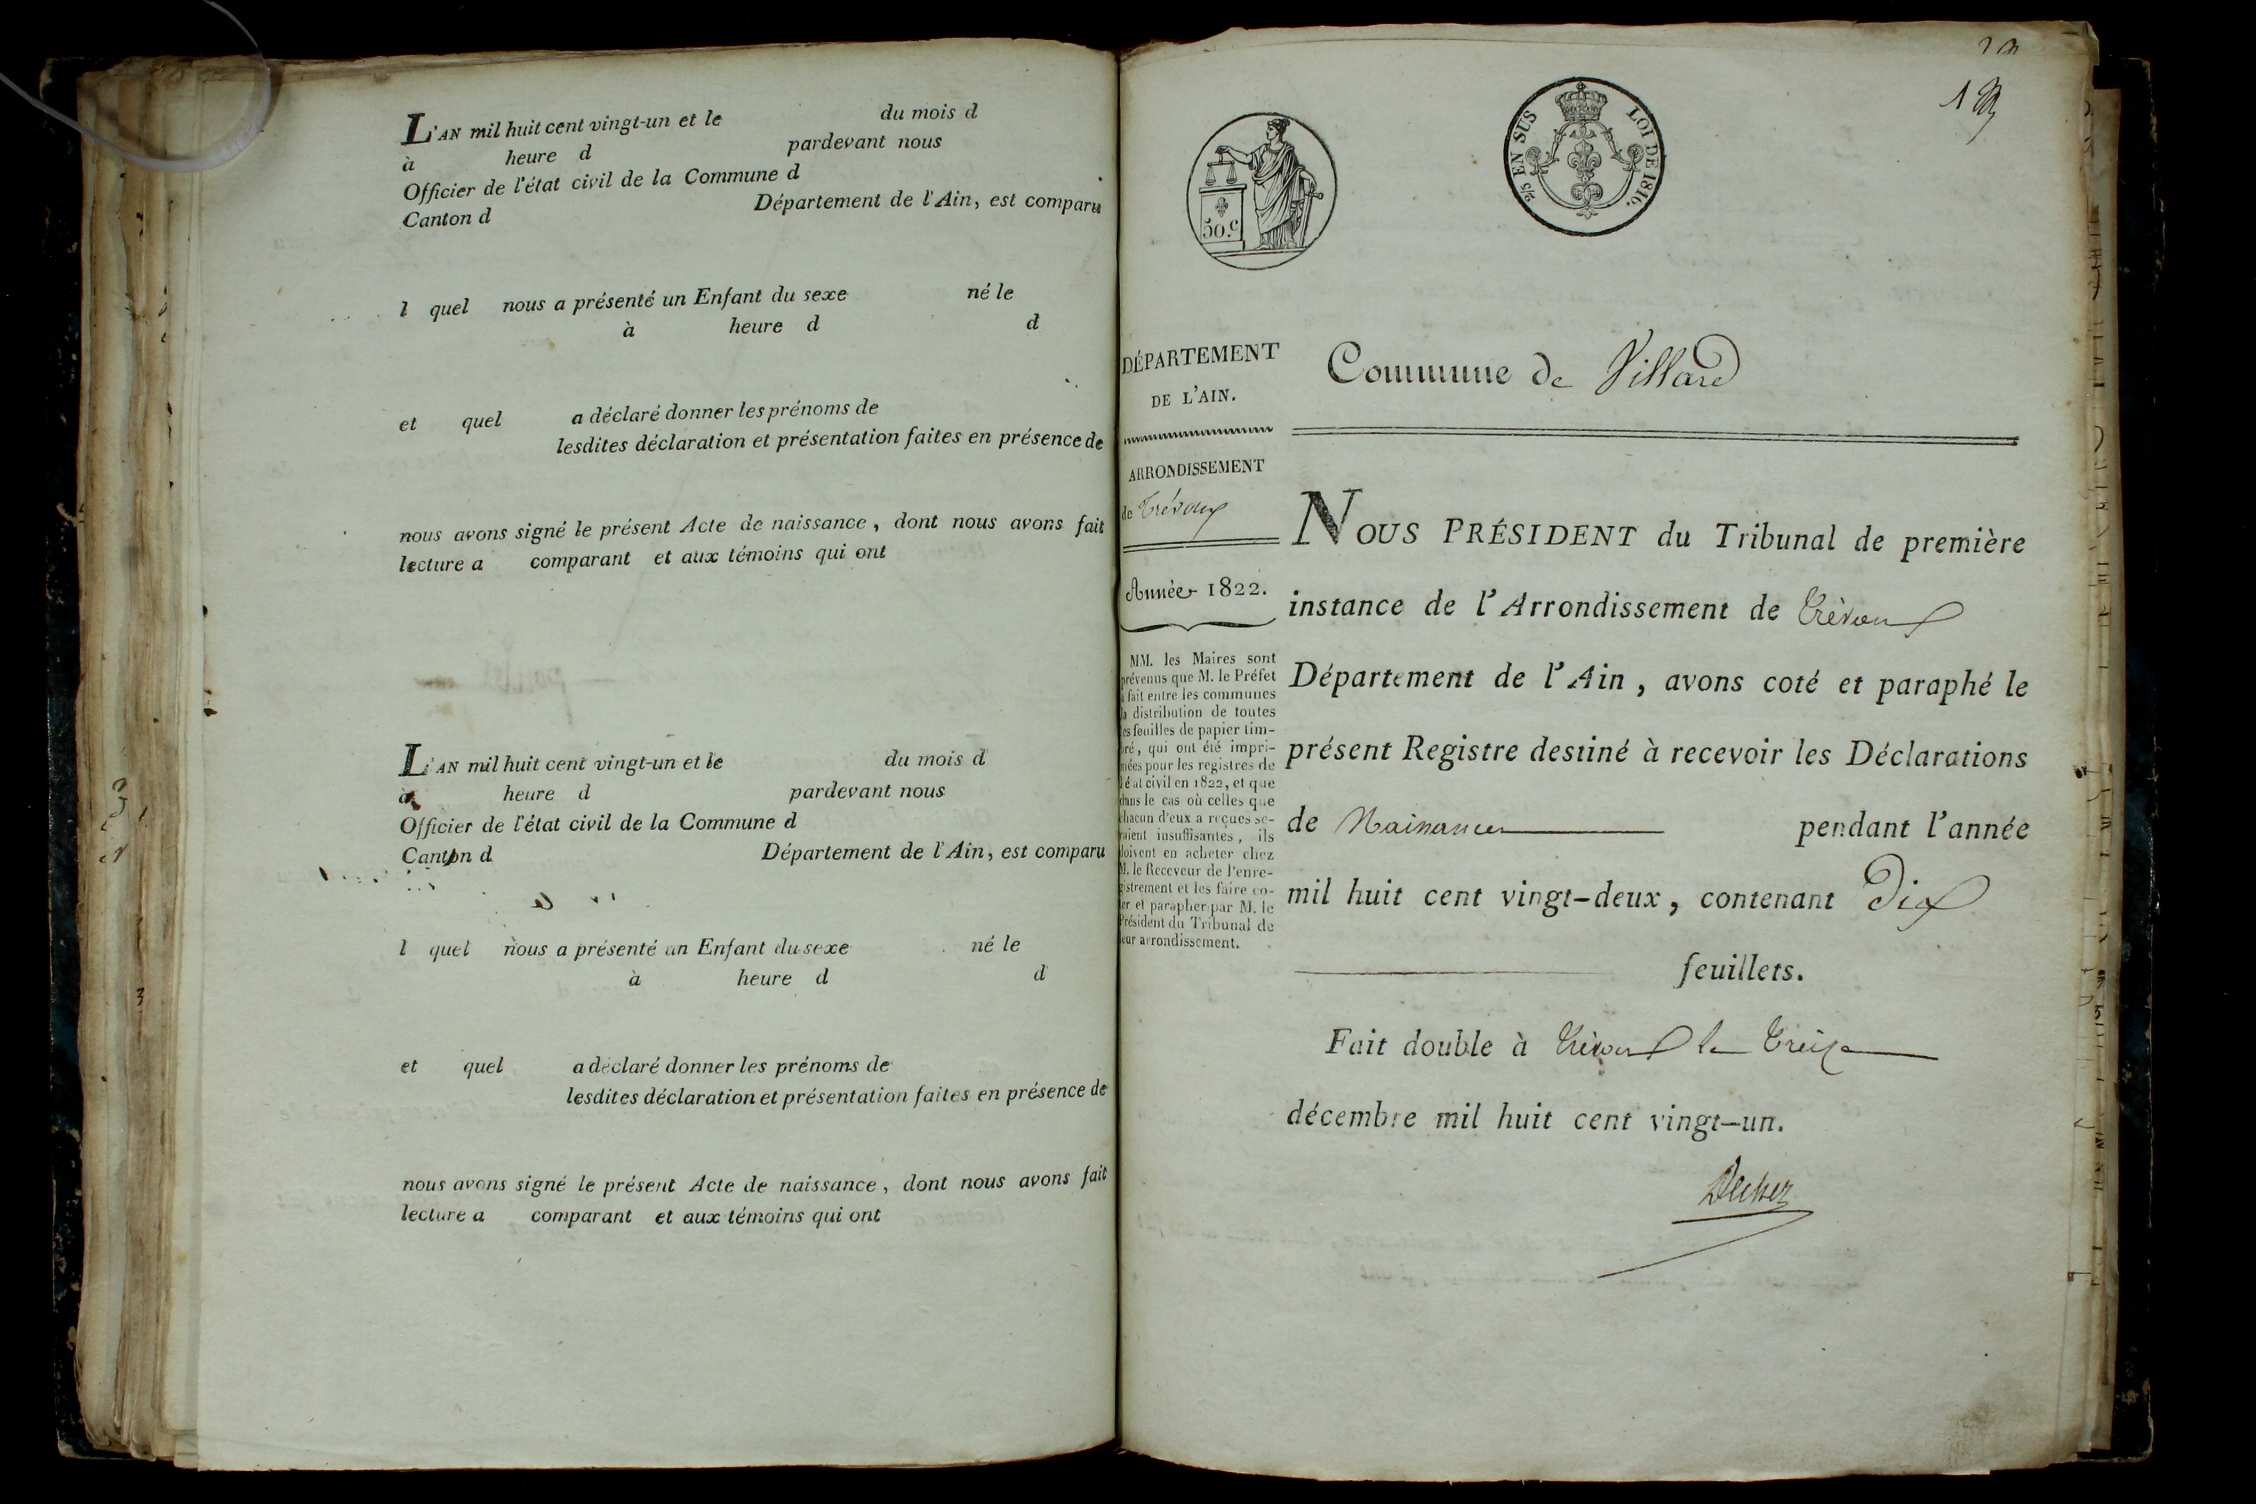 L'AN mil huit cent vingt-un et le du mois d
à heure d pardevant nous
Officier de l'état civil de la Commune d
Canton d Département de l'Ain, est comparu
l quel nous a présenté un Enfant du sexe né le
à heure d d
et quel a déclaré donner les prénoms de
lesdites déclaration et présentation faites en présence de
nous avons signé le présent Acte de naissance, dont nous avons fait
lecture a comparant et aux témoins qui ont
L'AN mil huit cent vingt-un et le du mois d
à heure d pardevant nous
Officier de l'état civil de la Commune d
Canton d Département de l'Ain, est comparu
l quel nous a présenté un Enfant du sexe né le
à heure d d
et quel a déclaré donner les prénoms de
lesdites déclaration et présentation faites en présence de
nous avons signé le présent Acte de naissance, dont nous avons fait
lecture a comparant et aux témoins qui ont
50.c
2/5 EN SUS LOI DE 1816.
DÉPARTEMENT
DE L'AIN.
ARRONDISSEMENT
de Trévoux
Année 1822.
MM. les Maires sont
prévenus que M. le Préfet
a fait entre les communes
la distribution de toutes
les feuilles de papier tim-
bré, qui ont été impri-
mées pour les registres de
l'état civil en 1822, et que
dans le cas où celles que
chacun d'eux a reçues se-
raient insuffisantes, ils
doivent en acheter chez
M. le Receveur de l'enre-
gistrement et les faire co-
ter et parapher par M. le
Président du Tribunal de
leur arrondissement.
Commune de Villard
NOUS PRÉSIDENT du Tribunal de première
instance de l'Arrondissement de Trévoux
Département de l'Ain, avons coté et paraphé le
présent Registre destiné à recevoir les Déclarations
de Naissances pendant l'année
mil huit cent vingt-deux, contenant Dix
feuillets.
Fait double à Trévoux le Treize
décembre mil huit cent vingt-un.